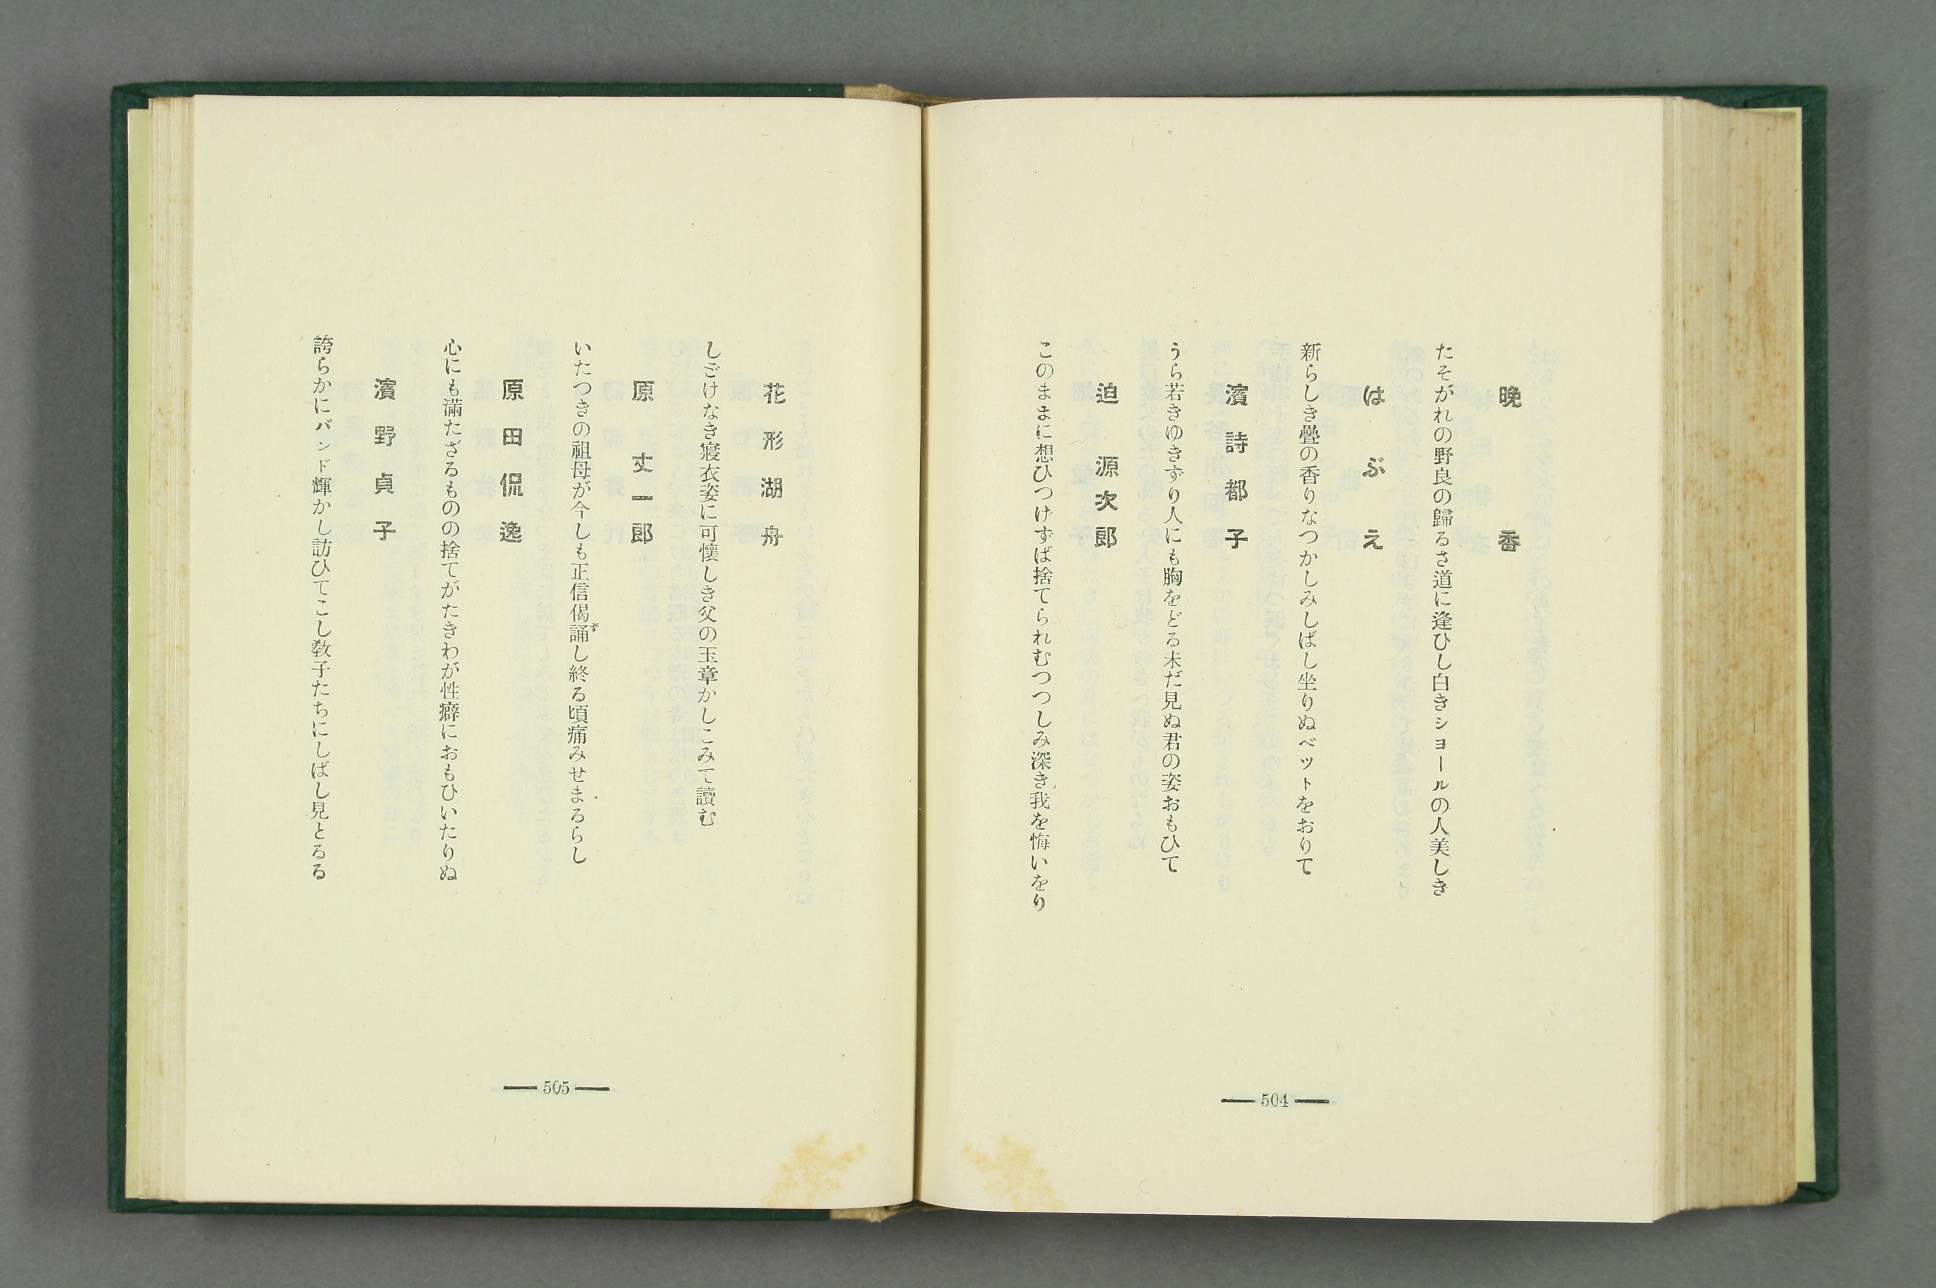 晩香
たそがれの野良の歸るさ道に逢ひし白きショールの人美しき
はぶえ
新らしき疊の香りなつかしみしばし坐りぬベットをおりて
濱詩都子
うら若きゆきずり人にも胸をどる未だ見ぬ君の姿おもひて
迫源次郎
このままに想ひつげずば捨てられむつつしみ深き我を悔いをり
504
花形湖舟
しごけなき寢衣姿に可懷しき父の玉章かしこみて讀む
原丈一郎
いたつきの祖母が今しも正信偈誦ずし終る頃痛みせまるらし
原田侃逸
心にも滿たざるものの捨てがたきわが性癖におもひいたりぬ
濱野貞子
誇らかにバンド輝かし訪ひてこし敎子たちにしばし見とるる
505